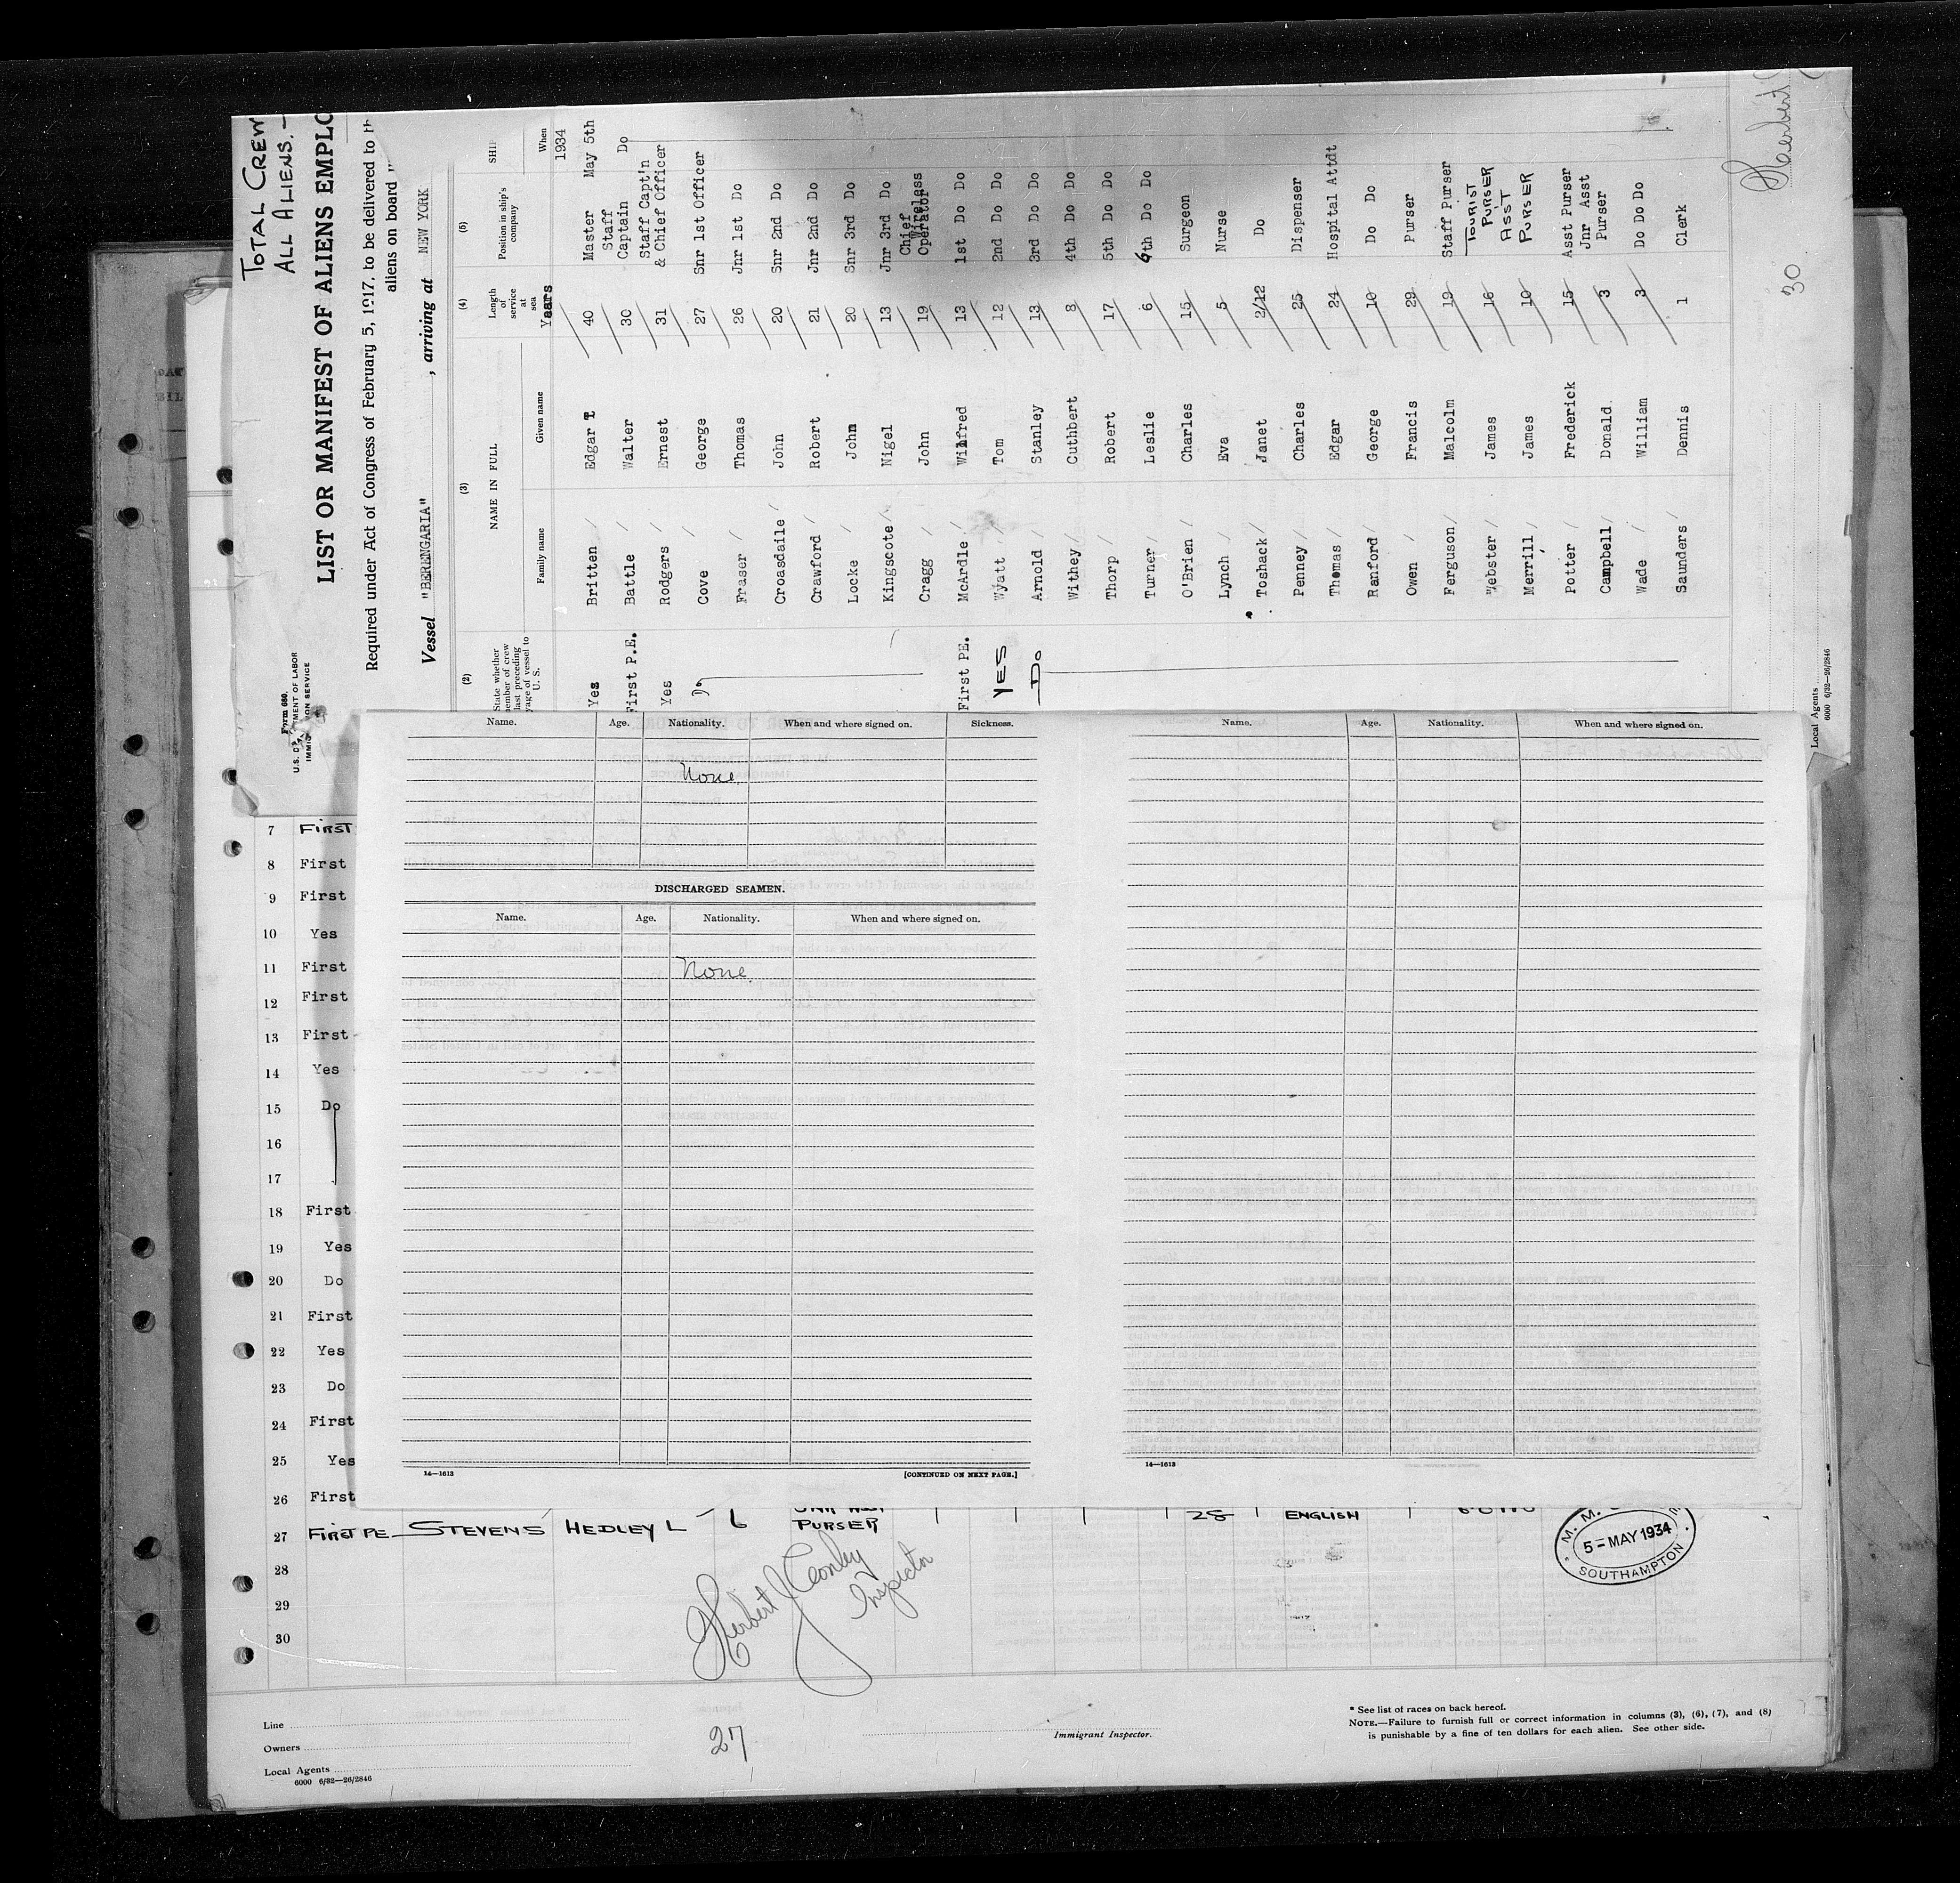 TOTAL CREW
ALL ALIENS. —
LIST OR MANIFEST OF ALIENS EMPLO
Required under Act of Congress of February 5, 1917, to be delivered to th
aliens on board
Form 680
U.S. DEPARTMENT OF LABOR
IMMIGRATION SERVICE
Vessel "BERENGARIA" , arriving at NEW YORK
(2) (3) (4) (5)
State whether member of crew last preceding voyage of vessel to U. S.
NAME IN FULL
Family name Given name
Length of service at sea
Years
Position in ship's company
SHIP
When
1934
Yes Britten Edgar T 40 Master May 5th
First P.E. Battle Walter 30 Staff Captain Do
Yes Rodgers Ernest 31 Staff Capt'n & Chief Officer
Do Cove George 27 Snr 1st Officer
Fraser Thomas 26 Jnr 1st Do
Croasdaile John 20 Snr 2nd Do
Crawford Robert 21 Jnr 2nd Do
Locke John 20 Snr 3rd Do
Kingscote Nigel 13 Jnr 3rd Do
Cragg John 19 Chief Wireless Operator
First PE. McArdle Wilfred 13 1st Do Do
YES Wyatt Tom 12 2nd Do Do
Do Arnold Stanley 13 3rd Do Do
Withey Cuthbert 8 4th Do Do
Thorp Robert 17 5th Do Do
Turner Leslie 6 6th Do Do
O'Brien Charles 15 Surgeon
Lynch Eva 5 Nurse
Toshack Janet 2/12 Do
Penney Charles 25 Dispenser
Thomas Edgar 24 Hospital Attdt
Ranford George 10 Do Do
Owen Francis 29 Purser
Ferguson Malcolm 19 Staff Purser
Webster James 16 TOURIST PURSER
Merrill James 10 ASST PURSER
Potter Frederick 15 Asst Purser
Campbell Donald 3 Jnr Asst Purser
Wade William 3 Do Do Do
Saunders Dennis 1 Clerk
Herbert
30
Local Agents
6000 6/32—26/2846
Name. Age. Nationality. When and where signed on. Sickness.
None
DISCHARGED SEAMEN.
Name. Age. Nationality. When and where signed on.
None
14—1613 [CONTINUED ON NEXT PAGE.]
Name. Age. Nationality. When and where signed on.
14—1613
7 FIRST
8 First
9 First
10 Yes
11 First
12 First
13 First
14 Yes
15 Do
16
17
18 First
19 Yes
20 Do
21 First
22 Yes
23 Do
24 First
25 Yes
26 First
27 FIRST PE STEVENS HEDLEY L 6 PURSER 28 ENGLISH
28
29
30
Herbert J Conley
Inspector
5 - MAY 1934
SOUTHAMPTON
Line
Owners
Local Agents
6000 6/32—26/2846
27
Immigrant Inspector.
* See list of races on back hereof.
NOTE.—Failure to furnish full or correct information in columns (3), (6), (7), and (8)
is punishable by a fine of ten dollars for each alien. See other side.